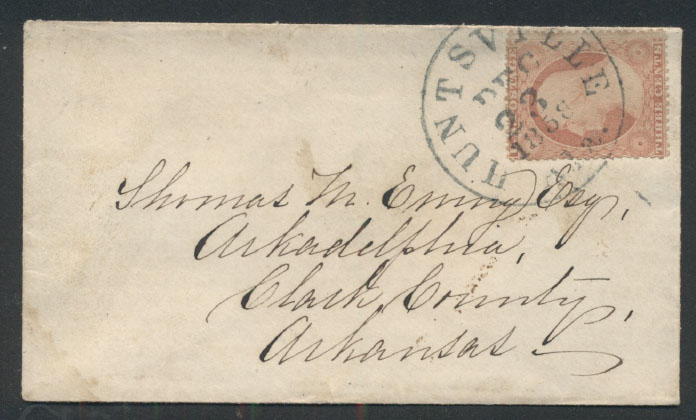 HUNTSVILLE
DEC
23
1858
Ala.
Thomas M. Emmy Esq,
Arkadelphia,
Clark County,
Arkansas